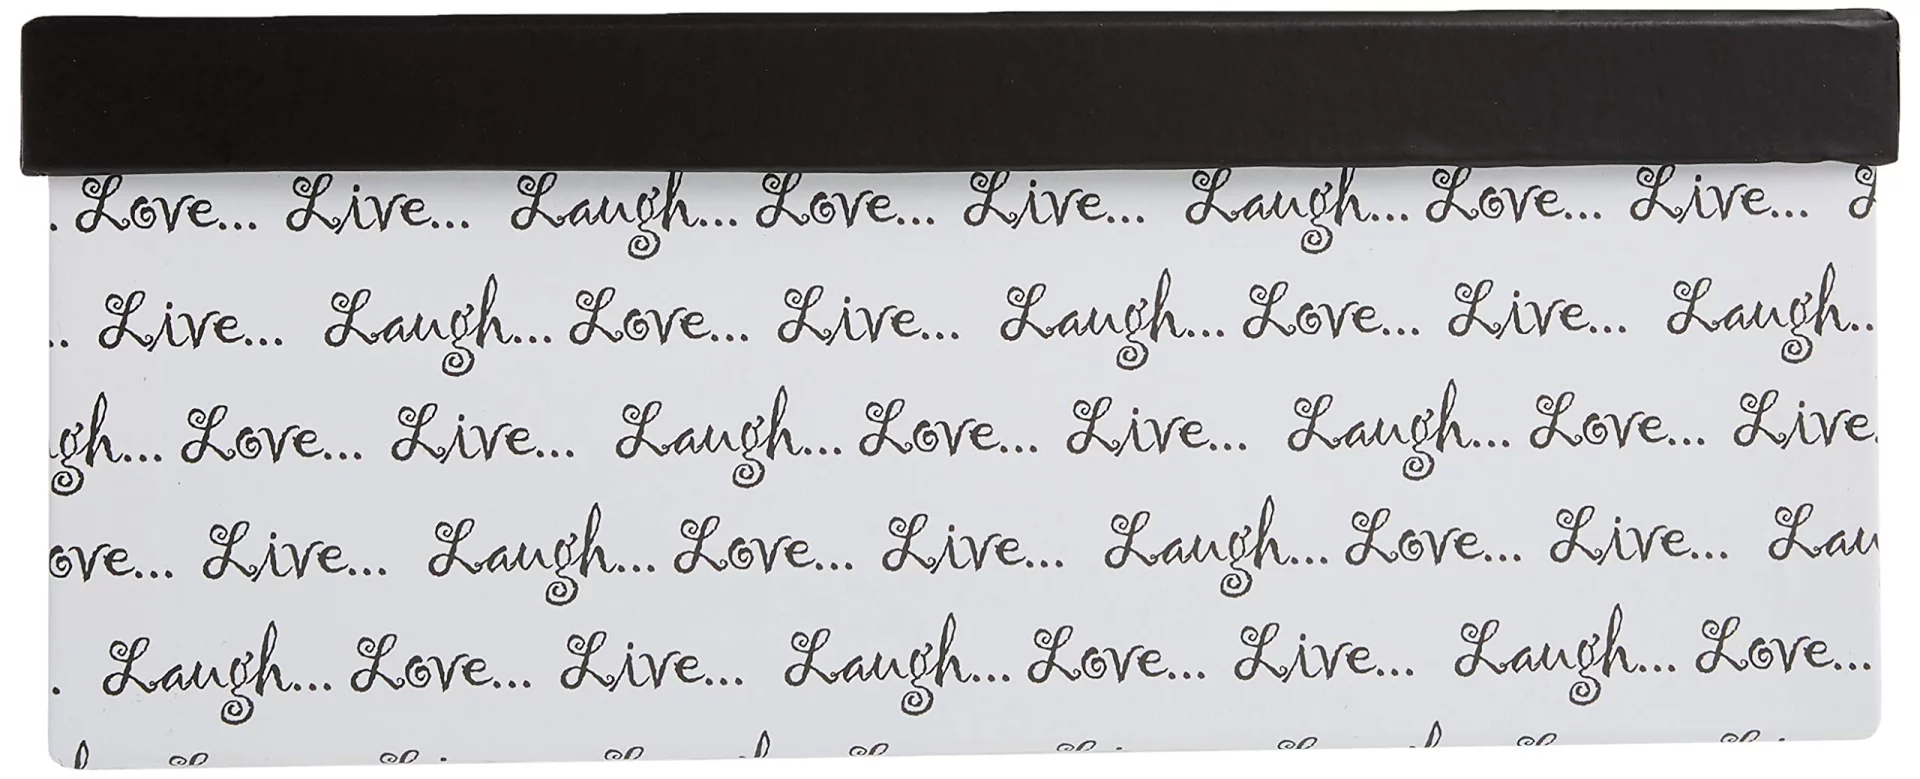 . Love... Live... Laugh... Love... Live... Laugh... Love... Live...
.. Live... Laugh... Love... Live... Laugh... Love... Live... Laugh..
gh... Love... Live... Laugh... Love... Live... Laugh... Love... Live.
ove... Live... Laugh... Love... Live... Laugh... Love... Live... Lau
. Laugh... Love... Live... Laugh... Love... Live... Laugh... Love...